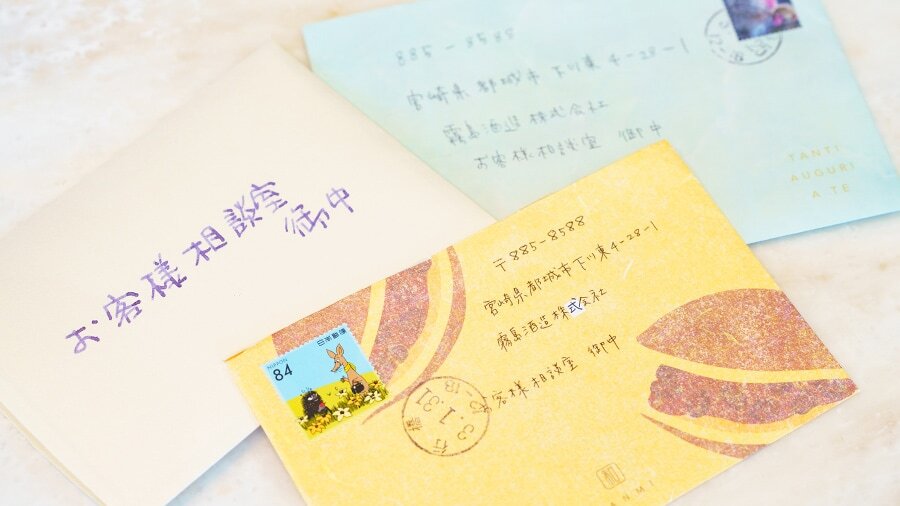 885-8588
宮崎県都城市下川東4-28-1
霧島酒造株式会社
お客様相談室 御中
TANTI
AUGURI
A TE
お客様相談室
御中
〒885-8588
宮崎県都城市下川東4-28-1
霧島酒造株式会社
客様相談室 御中
日本郵便
NIPPON
84
3.1.31
8-18